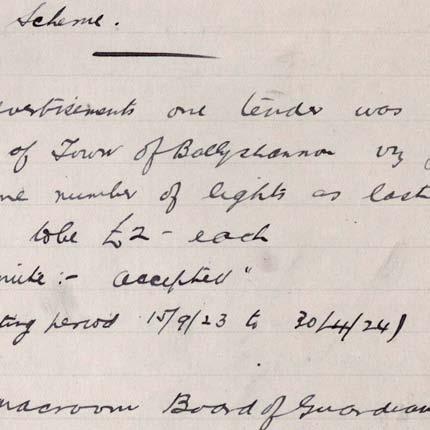 Scheme.
vertisements one tender was
of Town of Ballyshannon viz
ne number of lights as last
to be £2 - each
nute :- accepted"
ting period 15/9/23 to 30/4/24)
macroom Board of Guardian